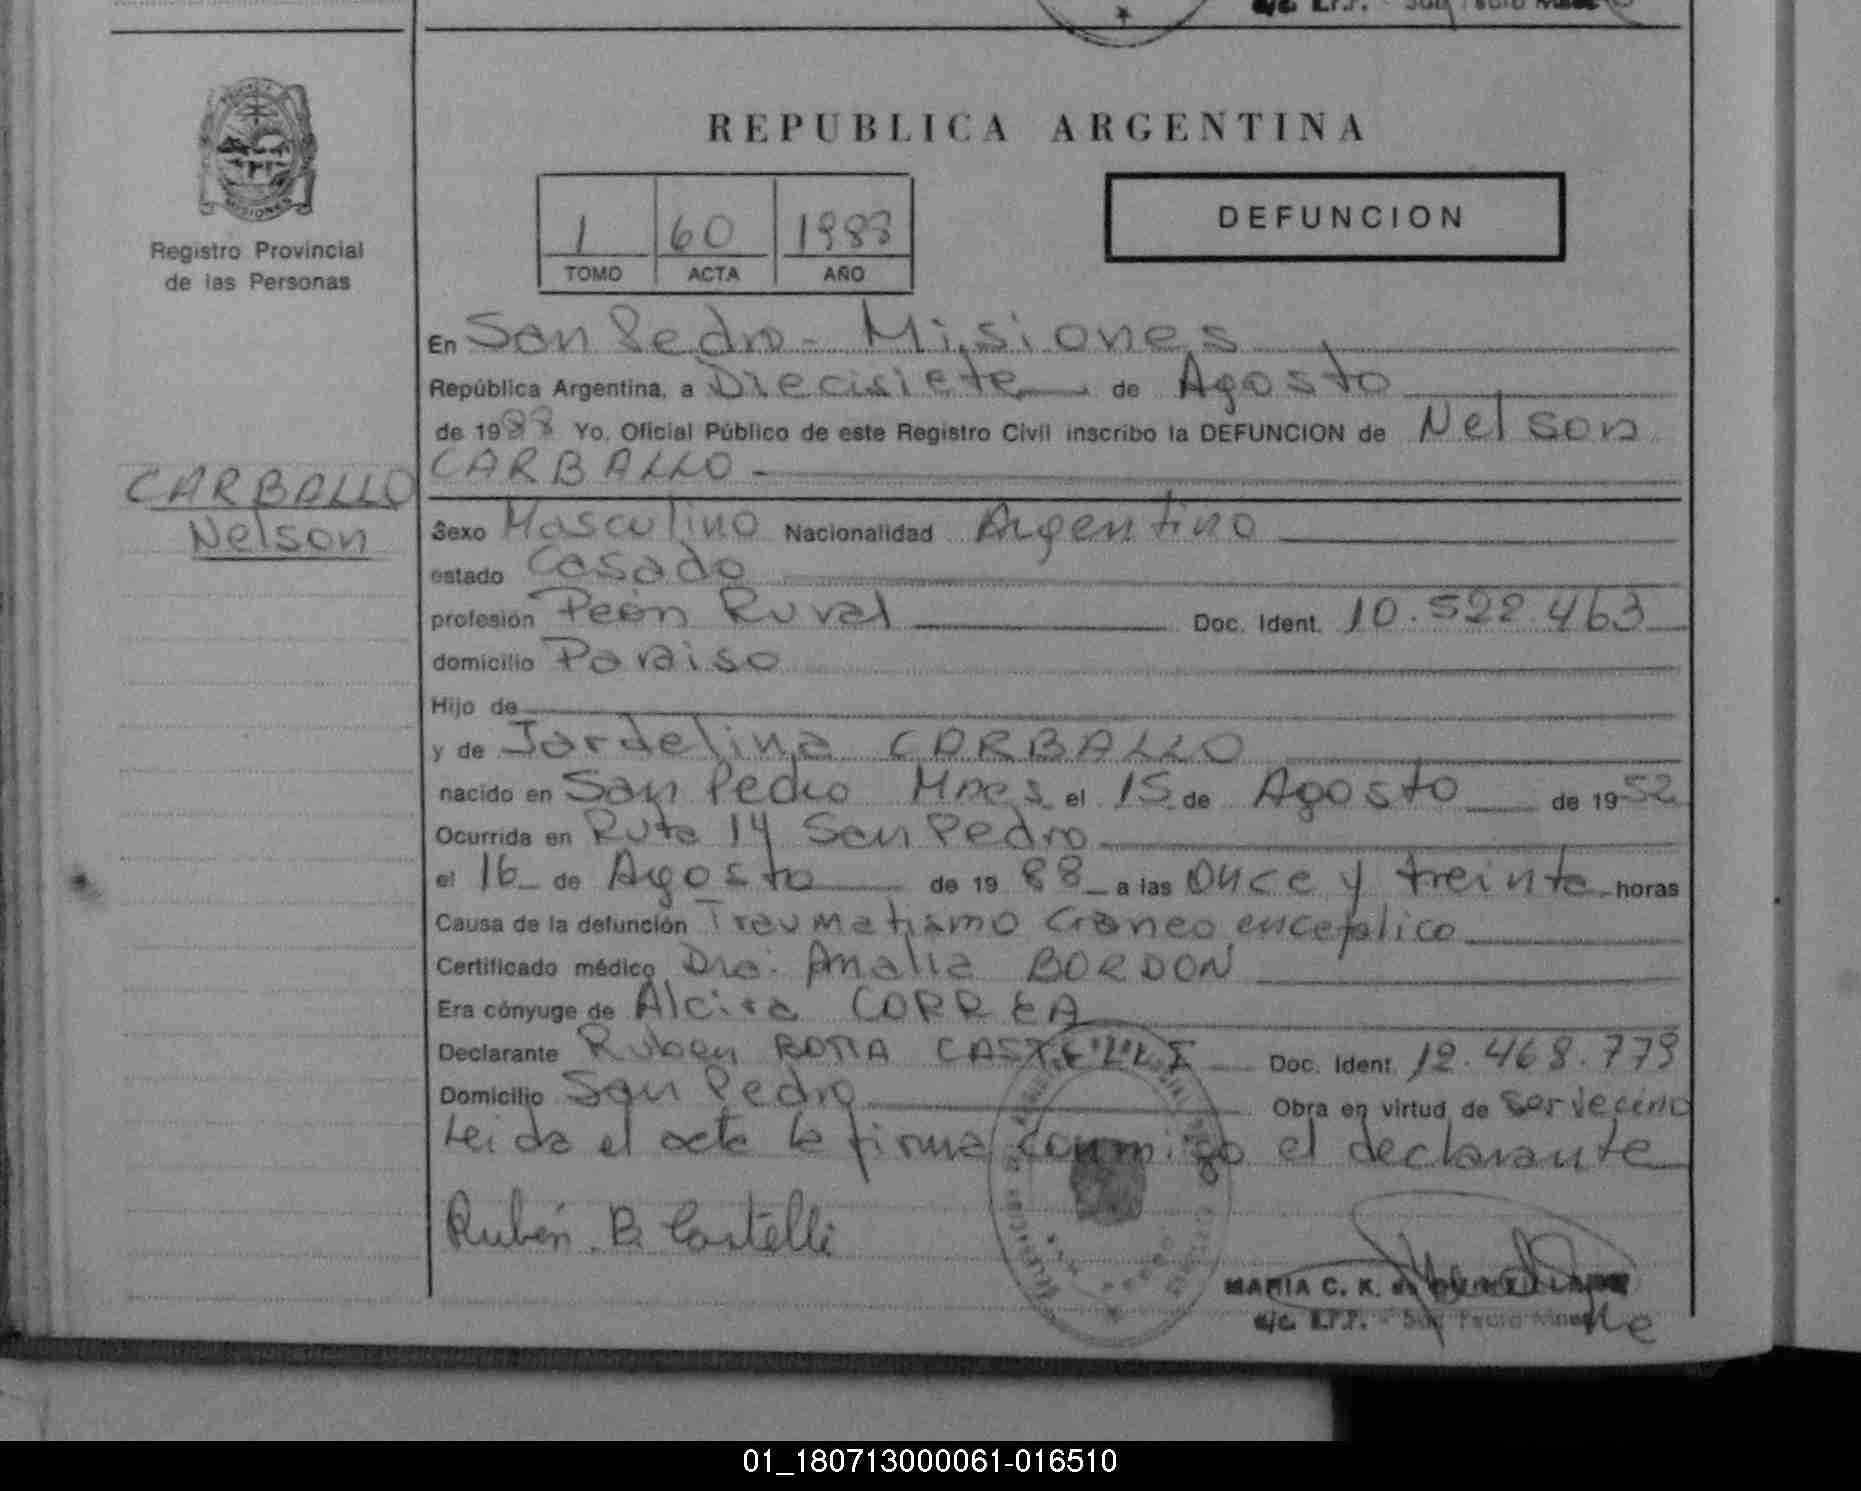 REPUBLICA ARGENTINA
Registro Provincial
de las Personas
1 60 1988
TOMO ACTA AÑO
DEFUNCION
En San Pedro - Misiones
República Argentina, a Diecisiete de Agosto
de 1988 Yo, Oficial Público de este Registro Civil inscribo la DEFUNCION de Nelson
CARBALLO -
CARBALLO
Nelson
Sexo Masculino Nacionalidad Argentino
estado Casado
profesión Peón Rural Doc. Ident. 10.522.463
domicilio Paraiso
Hijo de
y de Jardelina CARBALLO
nacido en San Pedro Mnes el 15 de Agosto de 1952
Ocurrida en Ruta 14 San Pedro
el 16 de Agosto de 1988 a las Once y treinta horas
Causa de la defunción Traumatismo Craneo encefalico
Certificado médico Dra. Analia BORDON
Era cónyuge de Alcira CORREA
Declarante Ruben CASTELLI Doc. Ident. 12.468.779
Domicilio San Pedro Obra en virtud de
Leida el acta la firma conmigo el declarante
Rubén B. Castelli
MARIA C. K. de
a/c. R.P.P. - San Pedro Mnes
01_180713000061-016510